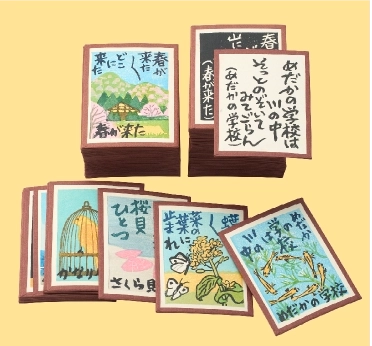 春が
来た
どこに
来た
春が来た
春
山に
(春が来た)
めだかの学校は
川の中
そっとのぞいて
みてごらん
(めだかの学校)
桜貝
ひとつ
さくら貝
蝶
菜の
葉に
止まれ
めだか
の学校
は川の
中
めだかの学校